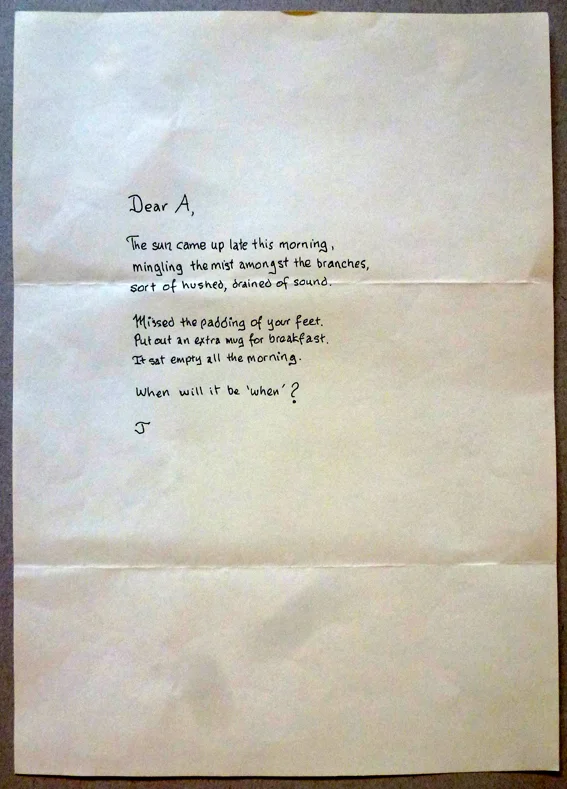 Dear A,
The sun came up late this morning,
mingling the mist amongst the branches,
sort of hushed, drained of sound.
Missed the padding of your feet.
Put out an extra mug for breakfast.
It sat empty all the morning.
When will it be 'when'?
J